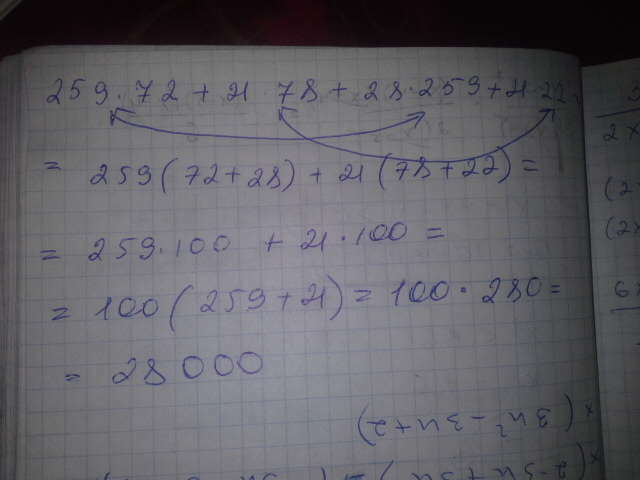 259·72 + 21·78 + 28·259 + 21·22 =
= 259(72+28) + 21(78+22) =
= 259·100 + 21·100 =
= 100(259+21) = 100·280 =
= 28000
(3n²-3n+2)